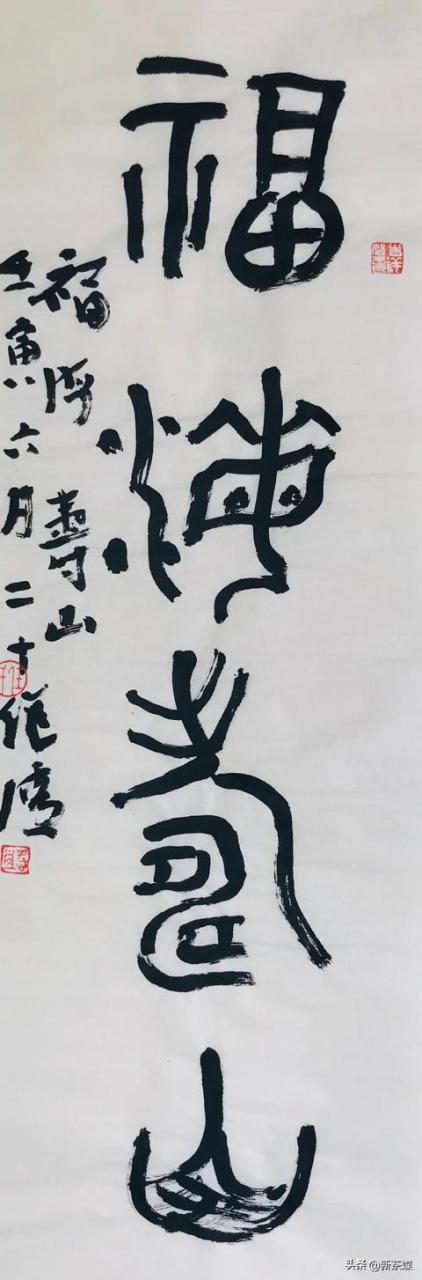 福海壽山
福海壽山
壬寅六月二十
头条 @新茶媒